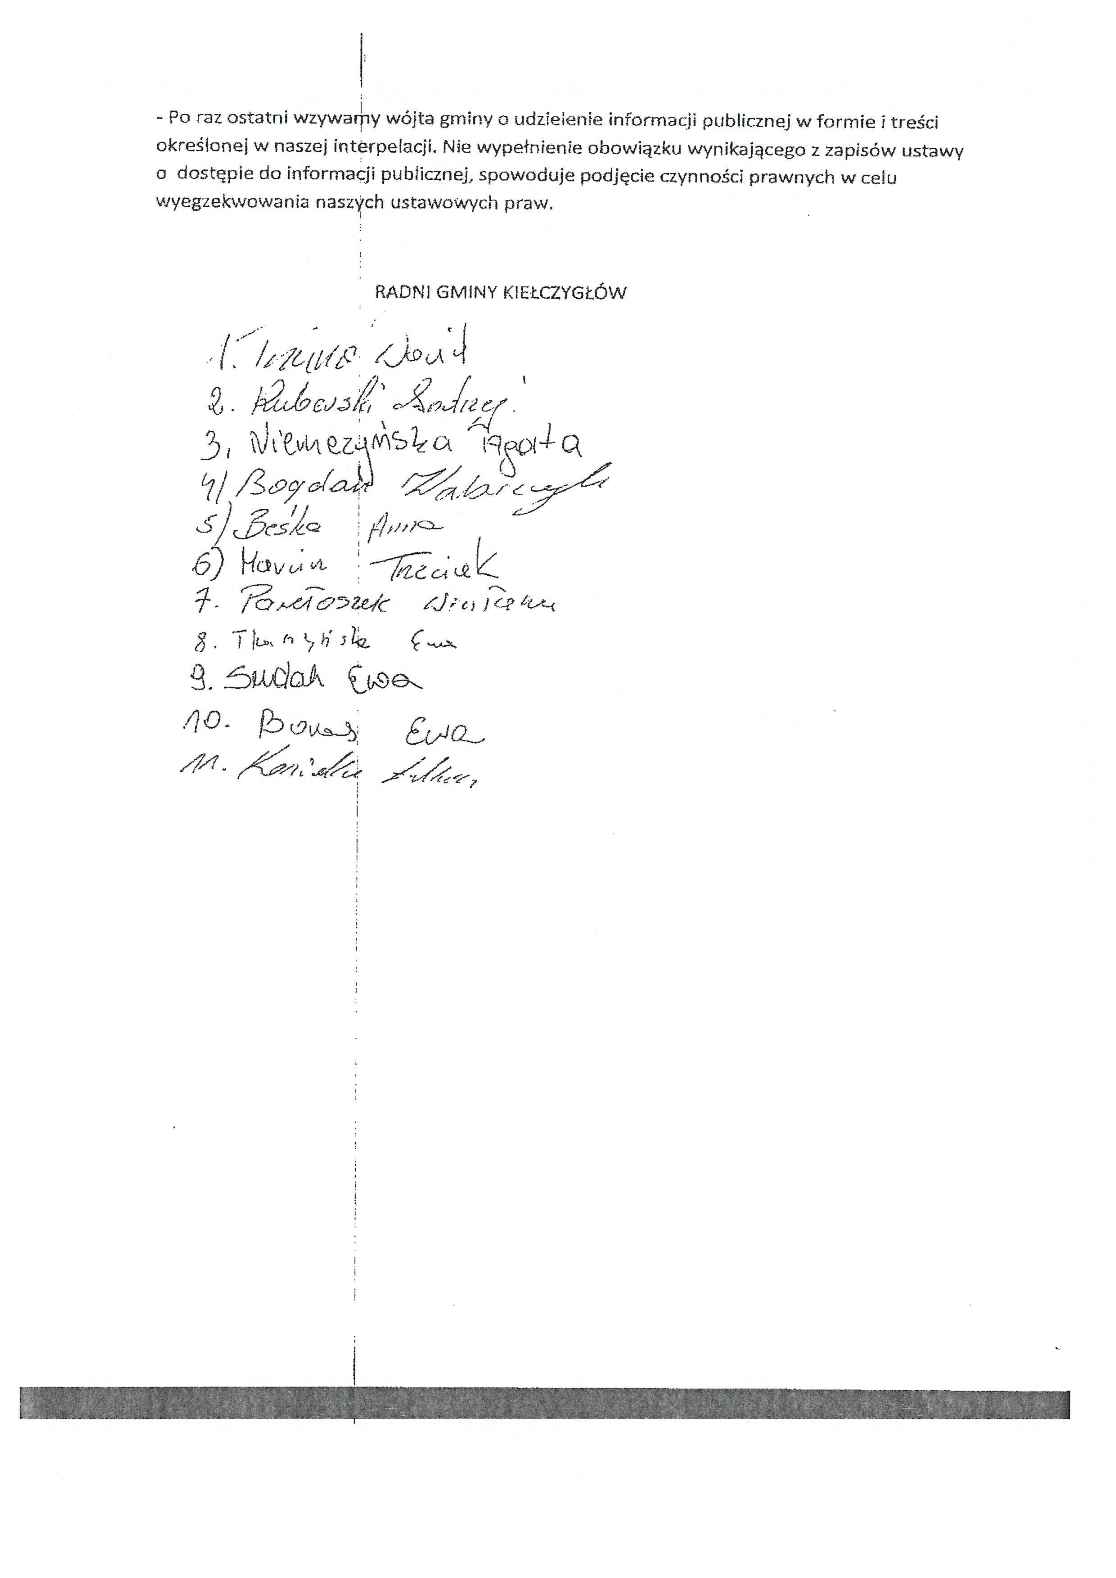 - Po raz ostatni wzywamy wójta gminy o udzielenie informacji publicznej w formie i treści
określonej w naszej interpelacji. Nie wypełnienie obowiązku wynikającego z zapisów ustawy
o dostępie do informacji publicznej, spowoduje podjęcie czynności prawnych w celu
wyegzekwowania naszych ustawowych praw.
RADNI GMINY KIEŁCZYGŁÓW
1.
2. Andrzej
3, Niemczyńska Agata
4) Bogdan
5) Beśka Anna
6) Marcin Trzciek
7.
8. Ewa
9. Sudak Ewa
10. Ewa
11.